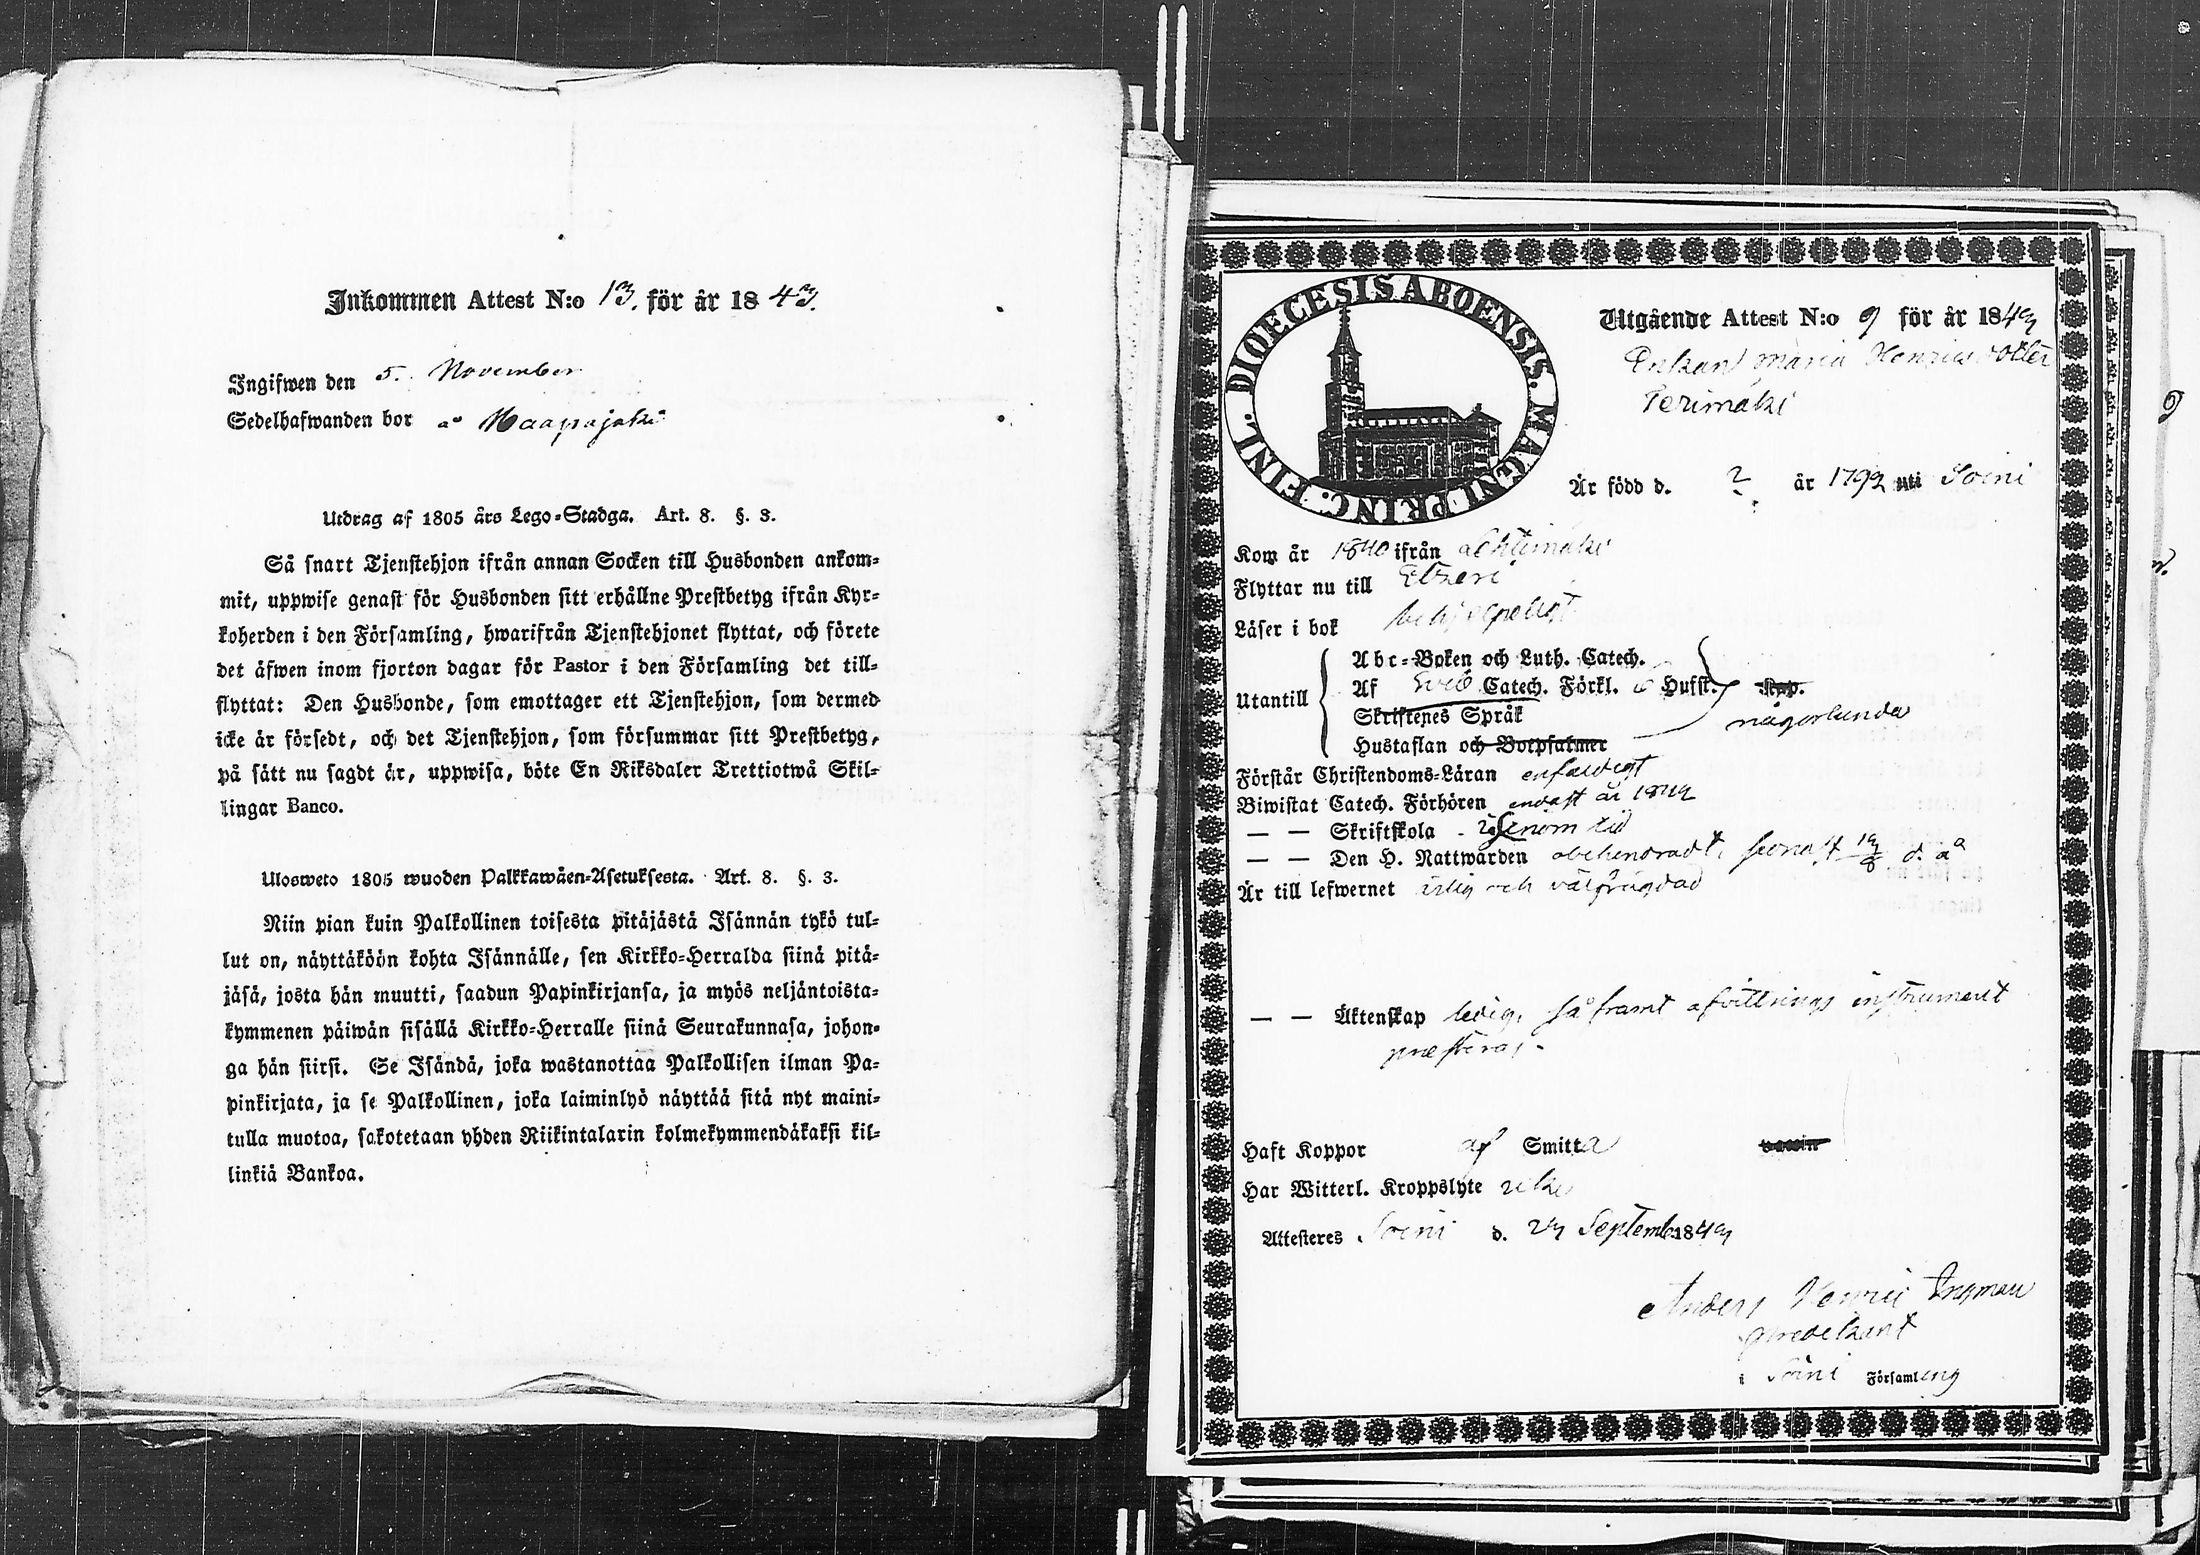 Inkommen Attest N:o 13. för år 1843.
Ingifwen den 5. November
Sedelhafwanden bor å
Utdrag af 1805 års Lego-Stadga. Art. 8. §. 3.
Så snart Tjenstehjon ifrån annan Socken till Husbonden ankom-
mit, uppwise genast för Husbonden sitt erhållne Prestbetyg ifrån Kyr-
koherden i den Församling, hwarifrån Tjenstehjonet flyttat, och förete
det äfwen inom fjorton dagar för Pastor i den Församling det till-
flyttat: Den Husbonde, som emottager ett Tjenstehjon, som dermed
icke är försedt, och det Tjenstehjon, som försummar sitt Prestbetyg,
på sätt nu sagdt är, uppwisa, böte En Riksdaler Trettiotwå Skil-
lingar Banco.
Ulosweto 1805 wuoden Palkkawäen-Asetuksesta. Art. 8. §. 3.
Niin pian kuin Palkollinen toisesta pitäjästä Isännän tykö tul-
lut on, näyttäköön kohta Isännälle, sen Kirkko-Herralda siinä pitä-
jäsä, josta hän muutti, saadun Papinkirjansa, ja myös neljäntoista-
kymmenen päiwän sisällä Kirkko-Herralle siinä Seurakunnasa, johon-
ga hän siirsi. Se Isändä, joka wastanottaa Palkollisen ilman Pa-
pinkirjata, ja se Palkollinen, joka laiminlyö näyttää sitä nyt maini-
tulla muotoa, sakotetaan yhden Riikintalarin kolmekymmendäkaksi kil-
linkiä Bankoa.
DIOECESIS ABOENSIS. MAGNI PRINC. FINL.
Utgående Attest N:o 9 för år 184
Enkan Maria Henricsdotter
Perimäki
Är född d. ? år 1792 uti Soini
Kom år 1840 ifrån Lehtimäki
Flyttar nu till Etseri
Läser i bok behjelpeligt
Utantill
Abc-Boken och Luth. Catech.
Af Catech. Förkl. Hufst. Kap.
Skriftenes Språk
någorlunda
Hustaflan och Botpsalmer
Förstår Christendoms-Läran enfaldigt
Biwistat Catech. Förhören endast år
— — Skriftskola
— — Den H. Nattwarden obehindradt, senast d. å
Är till lefwernet ärlig och välfrägdad
— — Äktenskap ledig, så framt afvittrings instrument
presteras.
Haft Koppor af Smitta vaccin
Har Witterl. Kroppslyte icke
Attesteres Soini d. Septemb. 184
Anders Henric Ingman
Predikant
i Soini Församling